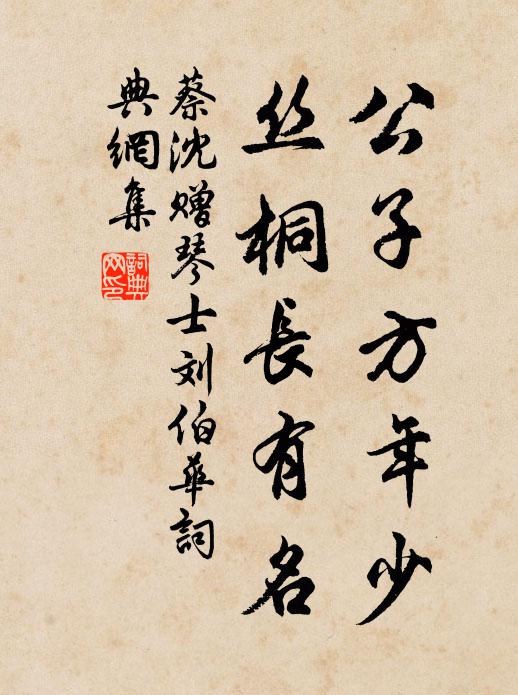 公子方年少
丝桐長有名
蔡沈赠琴士刘伯華詞
典網集
詞典網印